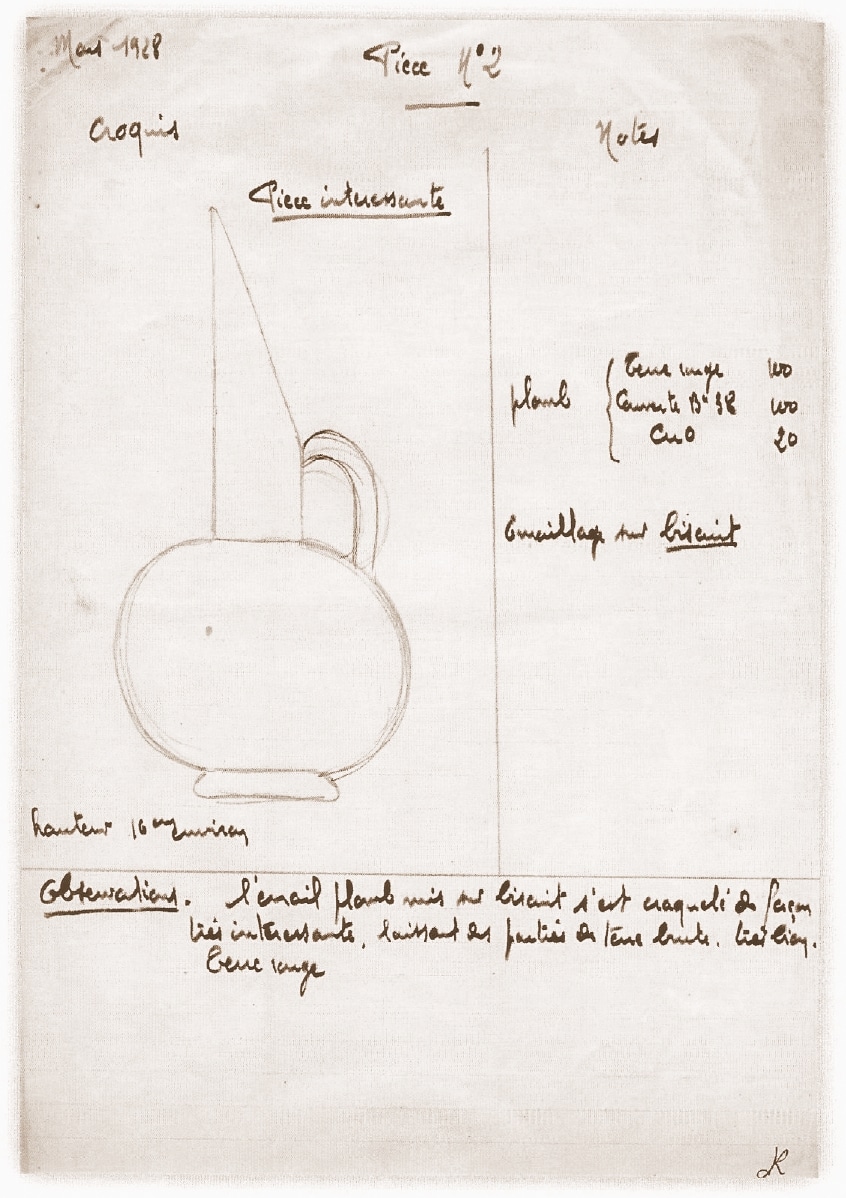 Mars 1928
Pièce N°2
Croquis
Notes
Pièce intéressante
plomb
Terre rouge 100
Couverte B° 98 100
CuO 20
Emaillage sur biscuit
hauteur 16 cm environ
Observations. l'émail plomb mis sur biscuit s'est craquelé de façon
très intéressante, laissant des parties de terre brute. très bien.
Terre rouge